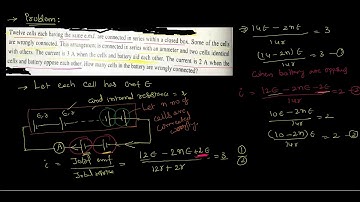 Problem:
Twelve cells each having the same e.m.f. are connected in series within a closed box. Some of the cells
are wrongly connected. This arrangement is connected in series with an ammeter and two cells identical
with others. The current is 3 A when the cells and battery aid each other. The current is 2 A when the
cells and battery oppose each other. How many cells in the battery are wrongly connected?
→ Let each cell has emf E
and internal resistance = r
Let n no of
cells are
connected
wrongly
E,r
A
i = Total emf / Total resistance = 12E - 2nE + 2E / 12r + 2r = 3
⇒ 14E - 2nE / 14r = 3
(14 - 2n)E / 14r = 3 - ①
when battery are oppose
i = 12E - 2nE - 2E / 14r = 2
10E - 2nE / 14r = 2
(10 - 2n)E / 14r = 2 - ②
①
②